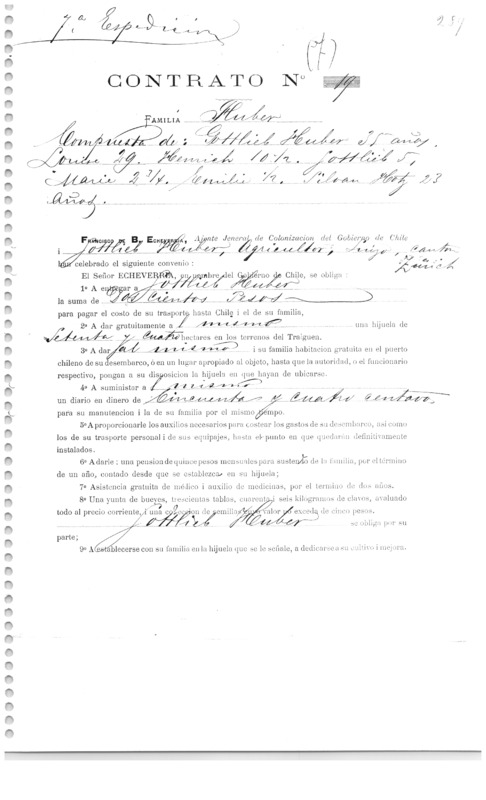 7.ª Expedición
237
(7)
CONTRATO Nº 19
FAMILIA Huber
Compuesta de: Gottlieb Huber 35 años.
Louise 29. Heinrich 10 ½. Gottlieb 5,
Marie 2 3/4. Emilie ½. Silvan Hotz 23
años.
FRANCISCO DE B. ECHEVERRIA, Ajente Jeneral de Colonizacion del Gobierno de Chile
i Gottlieb Huber, Agricultor, Suizo, canton
Zürich
han celebrado el siguiente convenio:
El Señor ECHEVERRIA, en nombre del Gobierno de Chile, se obliga:
1º A entregar a Gottlieb Huber
la suma de Doscientos Pesos
para pagar el costo de su trasporte hasta Chile i el de su familia,
2º A dar gratuitamente al mismo una hijuela de
Setenta y cuatro hectares en los terrenos del Traiguen.
3º A dar al mismo i su familia habitacion gratuita en el puerto
chileno de su desembarco, ó en un lugar apropiado al objeto, hasta que la autoridad, o el funcionario
respectivo, pongan a su disposicion la hijuela en que hayan de ubicarse.
4º A suministar al mismo
un diario en dinero de Cincuenta y cuatro centavos
para su manutencion i la de su familia por el mismo tiempo.
5º A proporcionarle los auxilios necesarios para costear los gastos de su desembarco, asi como
los de su trasporte personal i de sus equipajes, hasta el punto en que quedaren definitivamente
instalados.
6º A darle: una pension de quince pesos mensuales para sustento de la familia, por el término
de un año, contado desde que se establezca en su hijuela;
7º Asistencia gratuita de médico i auxilio de medicinas, por el termino de dos años.
8º Una yunta de bueyes, trescientas tablas, cuarenta i seis kilogramos de clavos, avaluado
todo al precio corriente, i una coleccion de semillas cuyo valor no exceda de cinco pesos.
Gottlieb Huber se obliga por su
parte;
9º A establecerse con su familia en la hijuela que se le señale, a dedicarse a su cultivo i mejora.